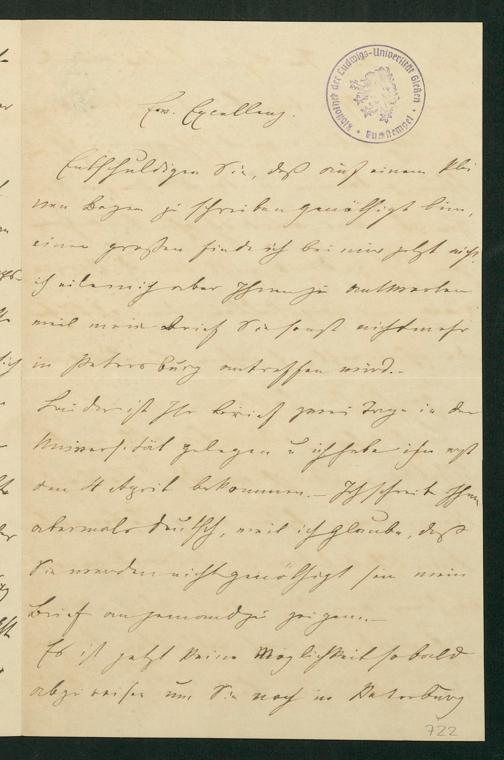 Bibliothek der Ludwigs-Universität Gießen · Tauschstempel
Ew. Excellenz.
Entschuldigen Sie, daß auf einem klei
nen Bogen zu schreiben genöthigt bin,
einen großen finde ich bei mir jetzt nicht
ich eile mich aber Ihnen zu antworten
weil mein Brief Sie sonst nicht mehr
in Petersburg antreffen wird.-
Leider ist Ihr Brief zwei Tage in der
Universität gelegen u ich habe ihn erst
den 4 April bekommen.- Ich schreibe Ihnen
abermals deutsch, weil ich glaube, daß
Sie werden nicht genöthigt sein mein
Brief an jemand zu zeigen.-
Es ist jetzt keine Möglichkeit so bald
abzureisen um Sie noch in Petersburg
722